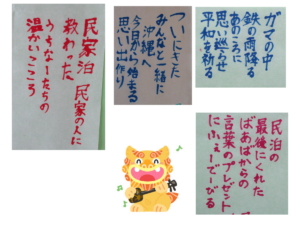 民家泊 民家の人に
教わった
うちなーたちの
温かいこころ
ついにきた
みんなと一緒に
沖縄へ
今日から始まる
思い出作り
ガマの中
鉄の雨降る
あのころに
思い巡らせ
平和を祈る
民泊の
最後にくれた
ばあばからの
言葉のプレゼント
にふぇーでーびる